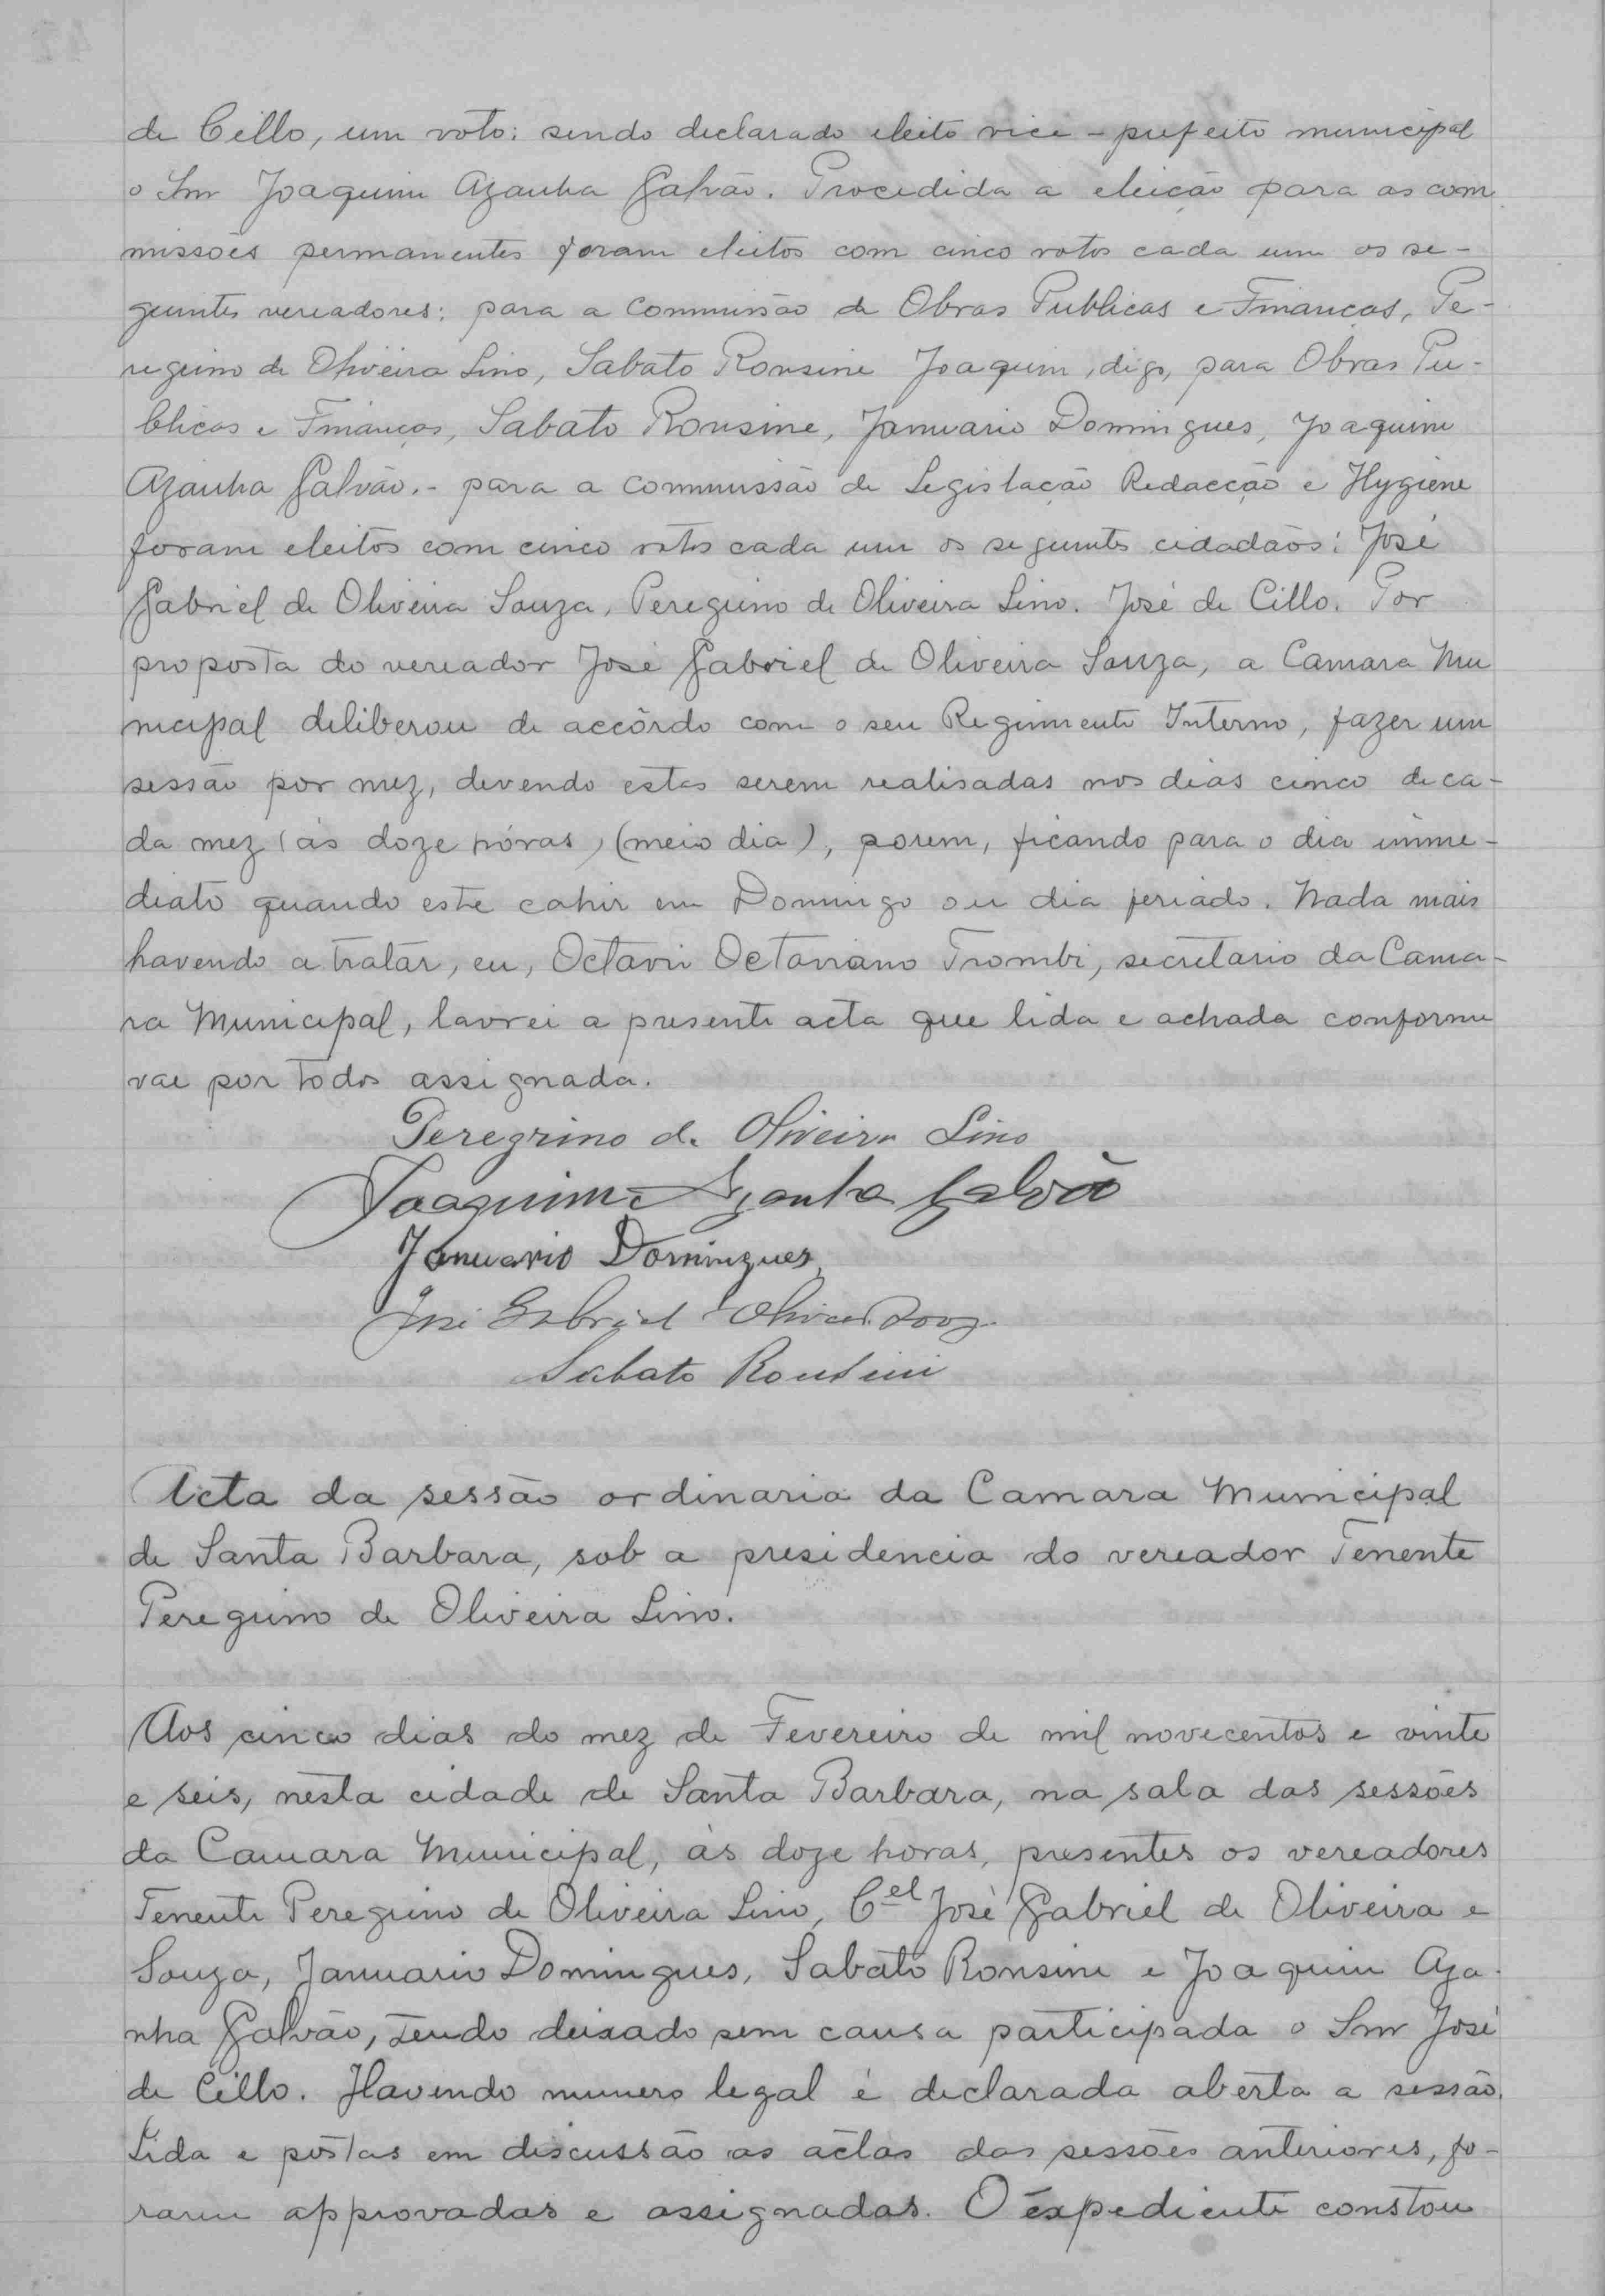 de Cillo, um voto; sendo declarado eleito vice-prefeito municipal
o Snr Joaquim Azanha Galvão. Procedida a eleição para as com
missões permanentes foram eleitos com cinco votos cada um os se-
guintes vereadores: para a Commissão de Obras Publicas e Finanças, Pe-
regrino de Oliveira Lino, Sabato Ronsine Joaquim, digo, para Obras Pu-
blicas e Finanças, Sabato Ronsine, Januario Domingues, Joaquim
Azanha Galvão.- para a commissão de Legislação Redacção e Hygiene
foram eleitos com cinco votos cada um os seguintes cidadãos: José
Gabriel de Oliveira Souza, Peregrino de Oliveira Lino. José de Cillo. Por
proposta do vereador José Gabriel de Oliveira Souza, a Camara Mu
nicipal deliberou de accôrdo com o seu Regimento Interno, fazer um
sessão por mez, devendo estas serem realisadas nos dias cinco de ca-
da mez (ás doze hóras) (meio dia), porem, ficando para o dia imme-
diato quando este cahir em Domingo ou dia feriado. Nada mais
havendo a tratar, eu, Octavio Octaviano Trombi, secretario da Cama-
ra Municipal, lavrei a presente acta que lida e achada conforme
vae por todos assignada.
Peregrino de Oliveira Lino
Joaquim Azanha Galvão
Januario Domingues
José Gabriel Oliveira Souza
Sabato Ronsini
Acta da sessão ordinaria da Camara Municipal
de Santa Barbara, sob a presidencia do vereador Tenente
Peregrino de Oliveira Lino.
Aos cinco dias do mez de Fevereiro de mil novecentos e vinte
e seis, nesta cidade de Santa Barbara, na sala das sessões
da Camara Municipal, ás doze horas, presentes os vereadores
Tenente Peregrino de Oliveira Lino, Cel José Gabriel de Oliveira e
Souza, Januario Domingues, Sabato Ronsini e Joaquim Aza-
nha Galvão, tendo deixado sem causa participada o Snr José
de Cillo. Havendo numero legal é declarada aberta a sessão.
Lida e postas em discussão as actas das sessões anteriores, fo-
ram approvadas e assignadas. O expediente constou